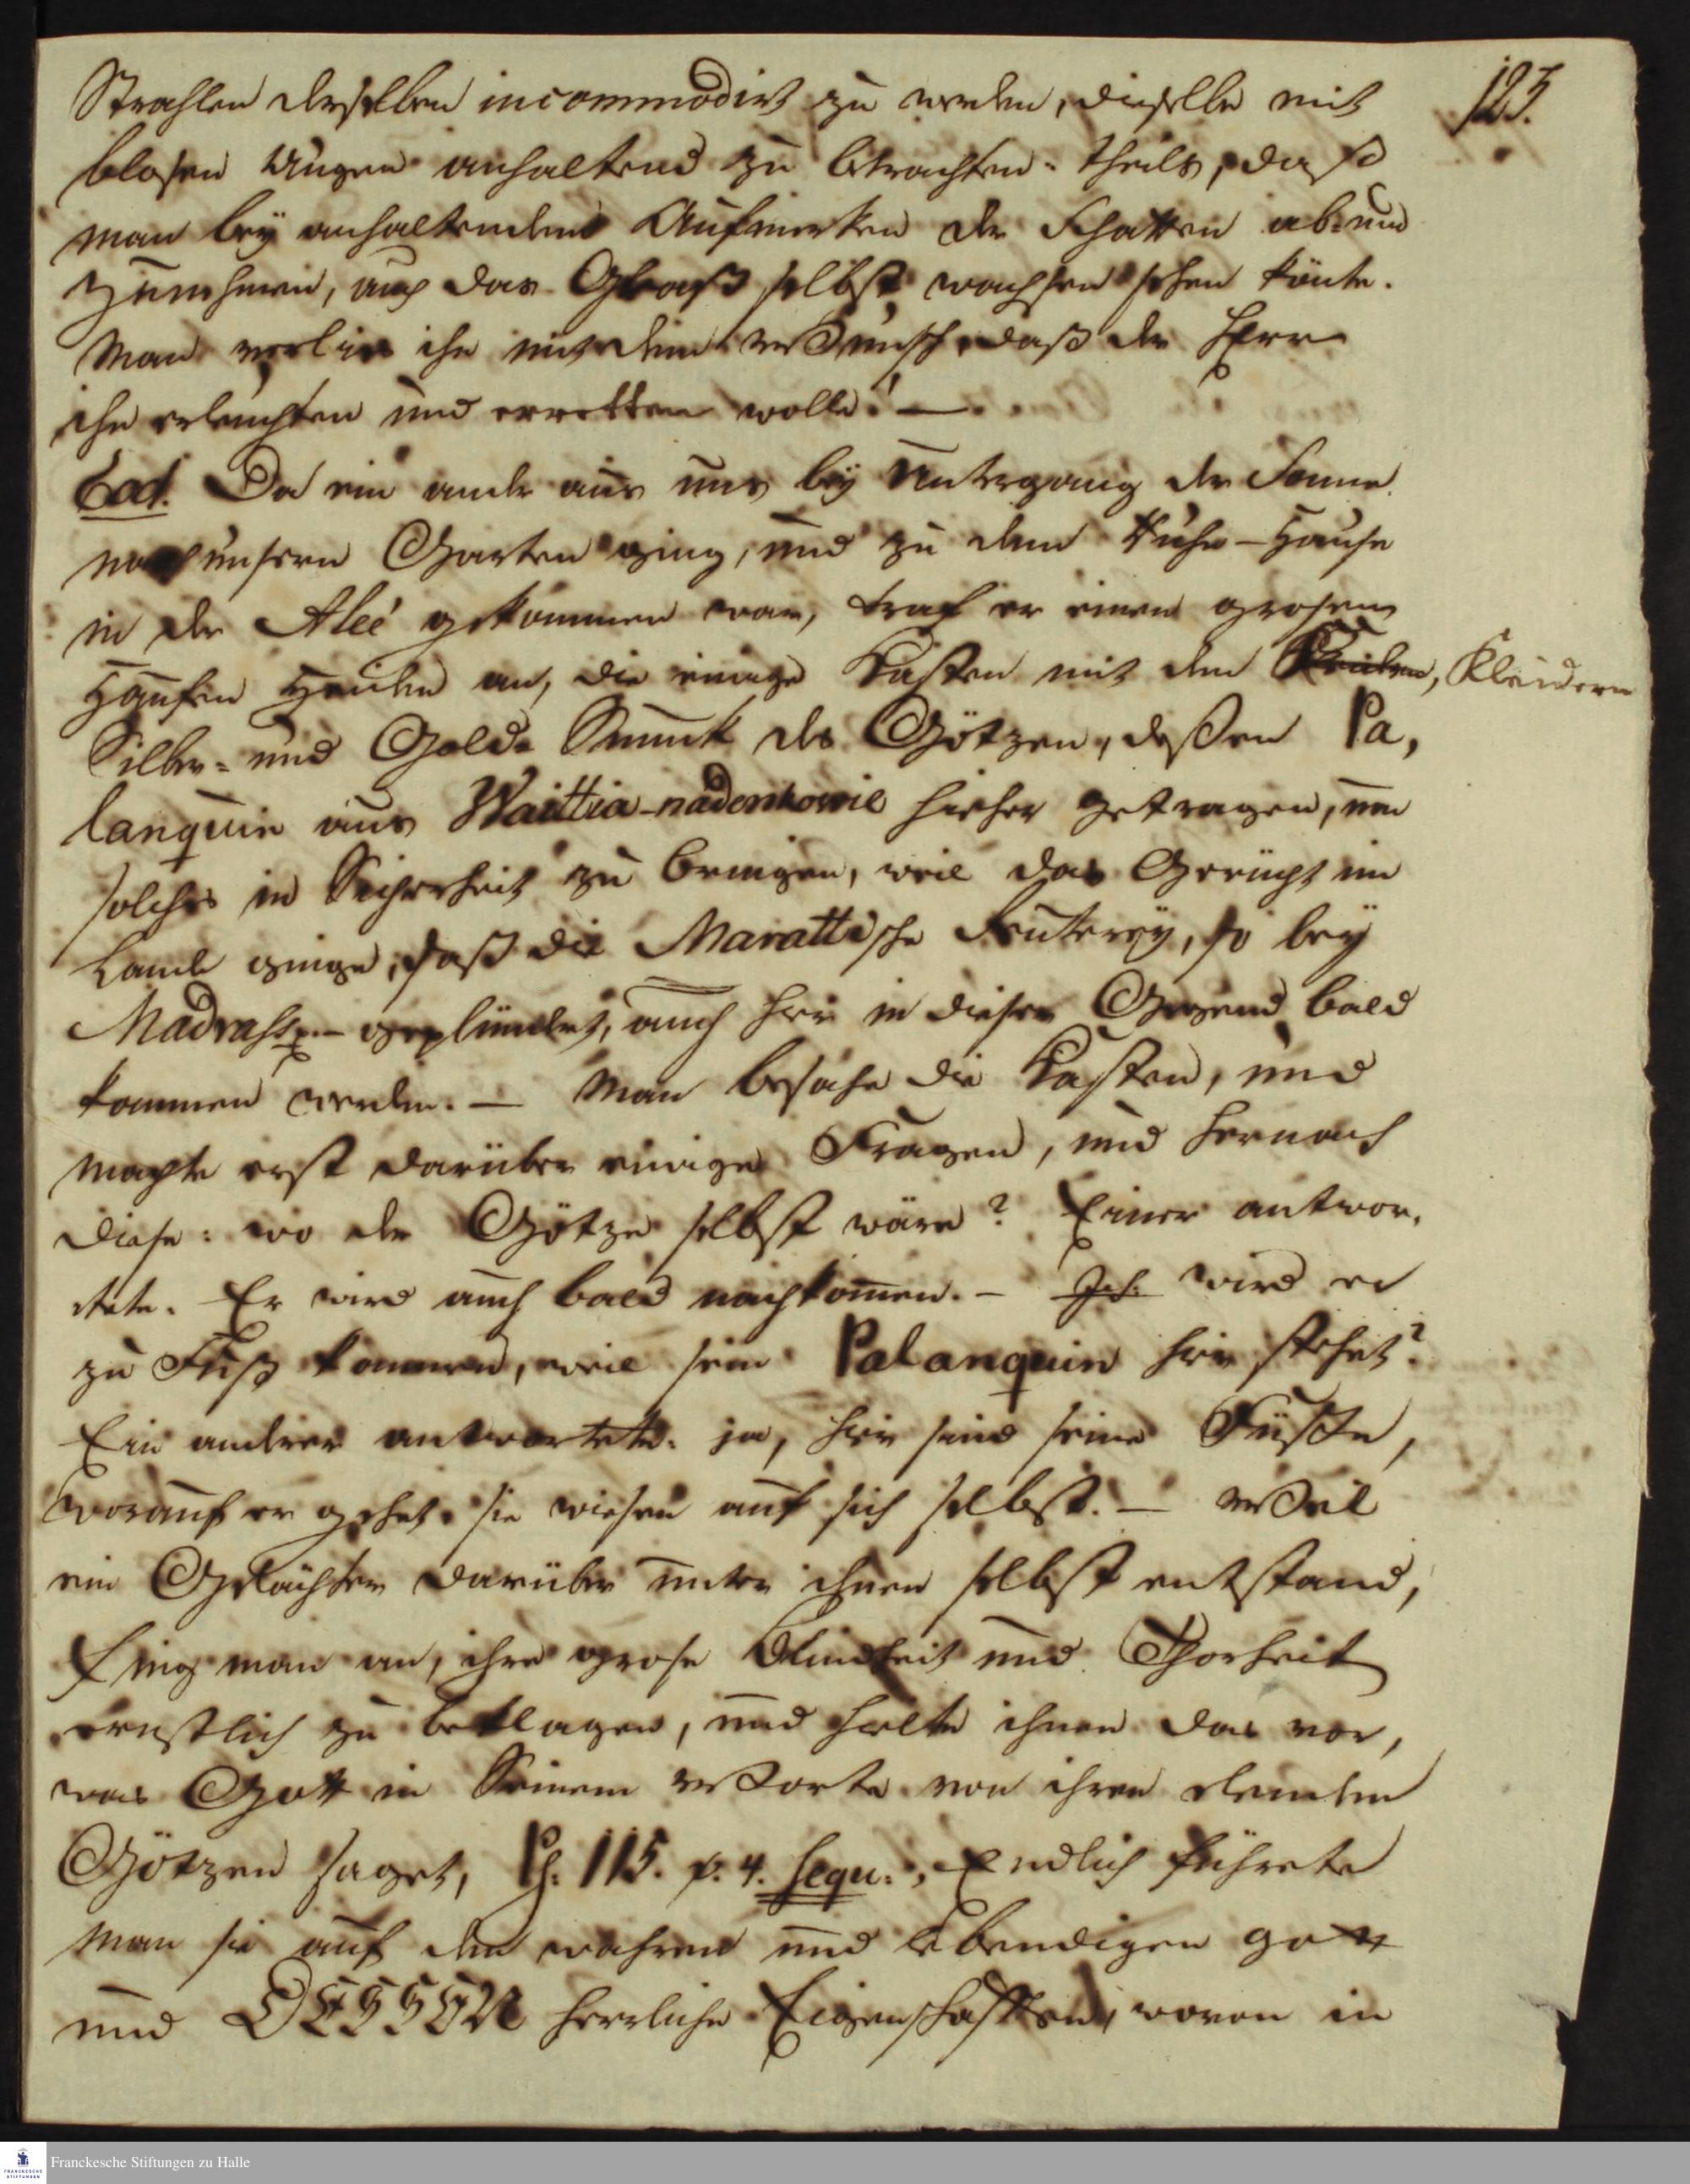 123.
Strahlen derselben incommodirt zu werden, dieselbe mit
blosen Augen anhaltend zu betrachten: theils, daß
man bey anhaltendem Aufmerken den Schatten ab- und
zunehmen, auch das Graß selbst wachsen sehen könte.
Man verlies ihn mit dem Wunsch, daß der Herr
ihn erleuchten und erretten wolle! —
Eod. Da ein andr aus uns bey Untergang der Sonne
nach unserm Garten ging, und zu dem Ruhe-Hause
in der Aleé gekommen war, traf er einen grosen
Haufen Heiden an, die einige Kasten mit den Kleidern
Silber- und Gold- Smuck des Götzen, deßen Pa,
lanquin aus Waittia-nadenkowil hieher getragen, um
solches in Sicherheit zu bringen, weil das Gerücht im
Lande ginge, daß die Marattische Reuterey, so bey
Madrass geplündert, auch hier in dieser Gegend bald
kommen werden. — Man besahe die Kasten, und
machte erst darüber einige Fragen, und hernach
diese: wo der Götze selbst wäre? Einer antwor,
tete. Er wird auch bald nachkomen. — Ich. wird er
zu Fuß kommen, weil sein Palanquin hier stehet?
Ein andrer antwortete: ja, hier sind seine Füße,
worauf er gehet. sie wiesen auf sich selbst. — Weil
ein Gelächter darüber unter ihnen selbst entstand,
fing man an, ihre grose Blindheit und Thorheit
ernstlich zu beklagen, und hielte ihnen das vor,
was Gott in Seinem Worte von ihren elenden
Götzen saget, Ps. 115. v. 4. sequ.; Endlich führete
man sie auf den wahren und lebendigen gott
und DESSEN herrliche Eigenschafften, wovon in
Franckesche Stiftungen zu Halle